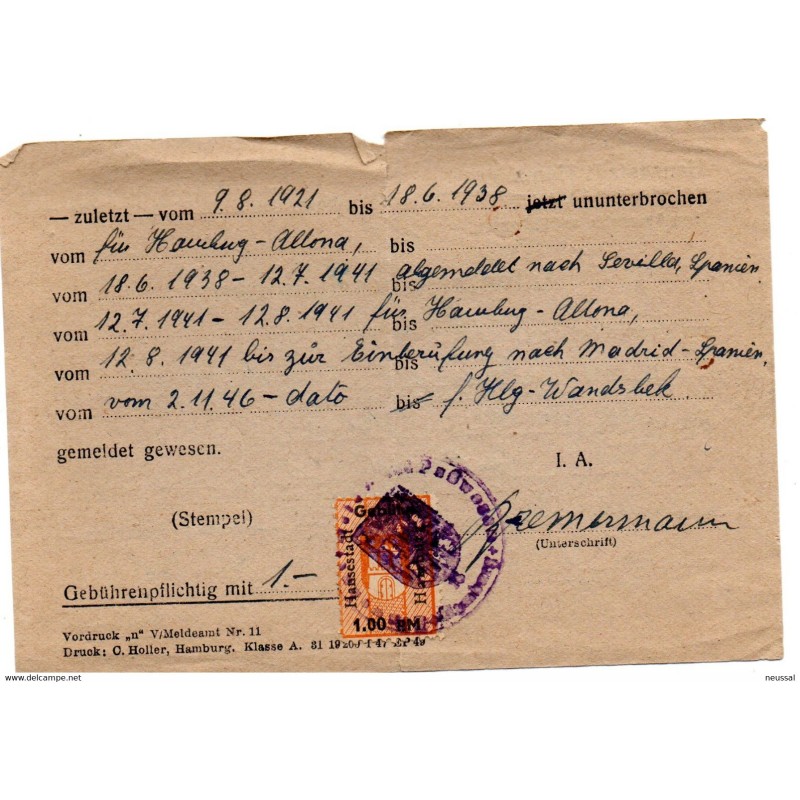 — zuletzt — vom 9.8.1921 bis 18.6.1938 jetzt ununterbrochen
vom für Hamburg-Altona, bis
vom 18.6.1938 - 12.7.1941 bis abgemeldet nach Sevilla, Spanien
vom 12.7.1941 - 12.8.1941 für bis Hamburg-Altona,
vom 12.8.1941 bis zur Einberufung bis nach Madrid-Spanien,
vom vom 2.11.46 - dato bis f. Hbg-Wandsbek
gemeldet gewesen.
I. A.
(Stempel)
(Unterschrift)
Gebührenpflichtig mit 1.-
Gebühr
Hansestadt
1.00 RM
Vordruck „n" V/Meldeamt Nr. 11
Druck: C. Holler, Hamburg. Klasse A.
www.delcampe.net
neussal